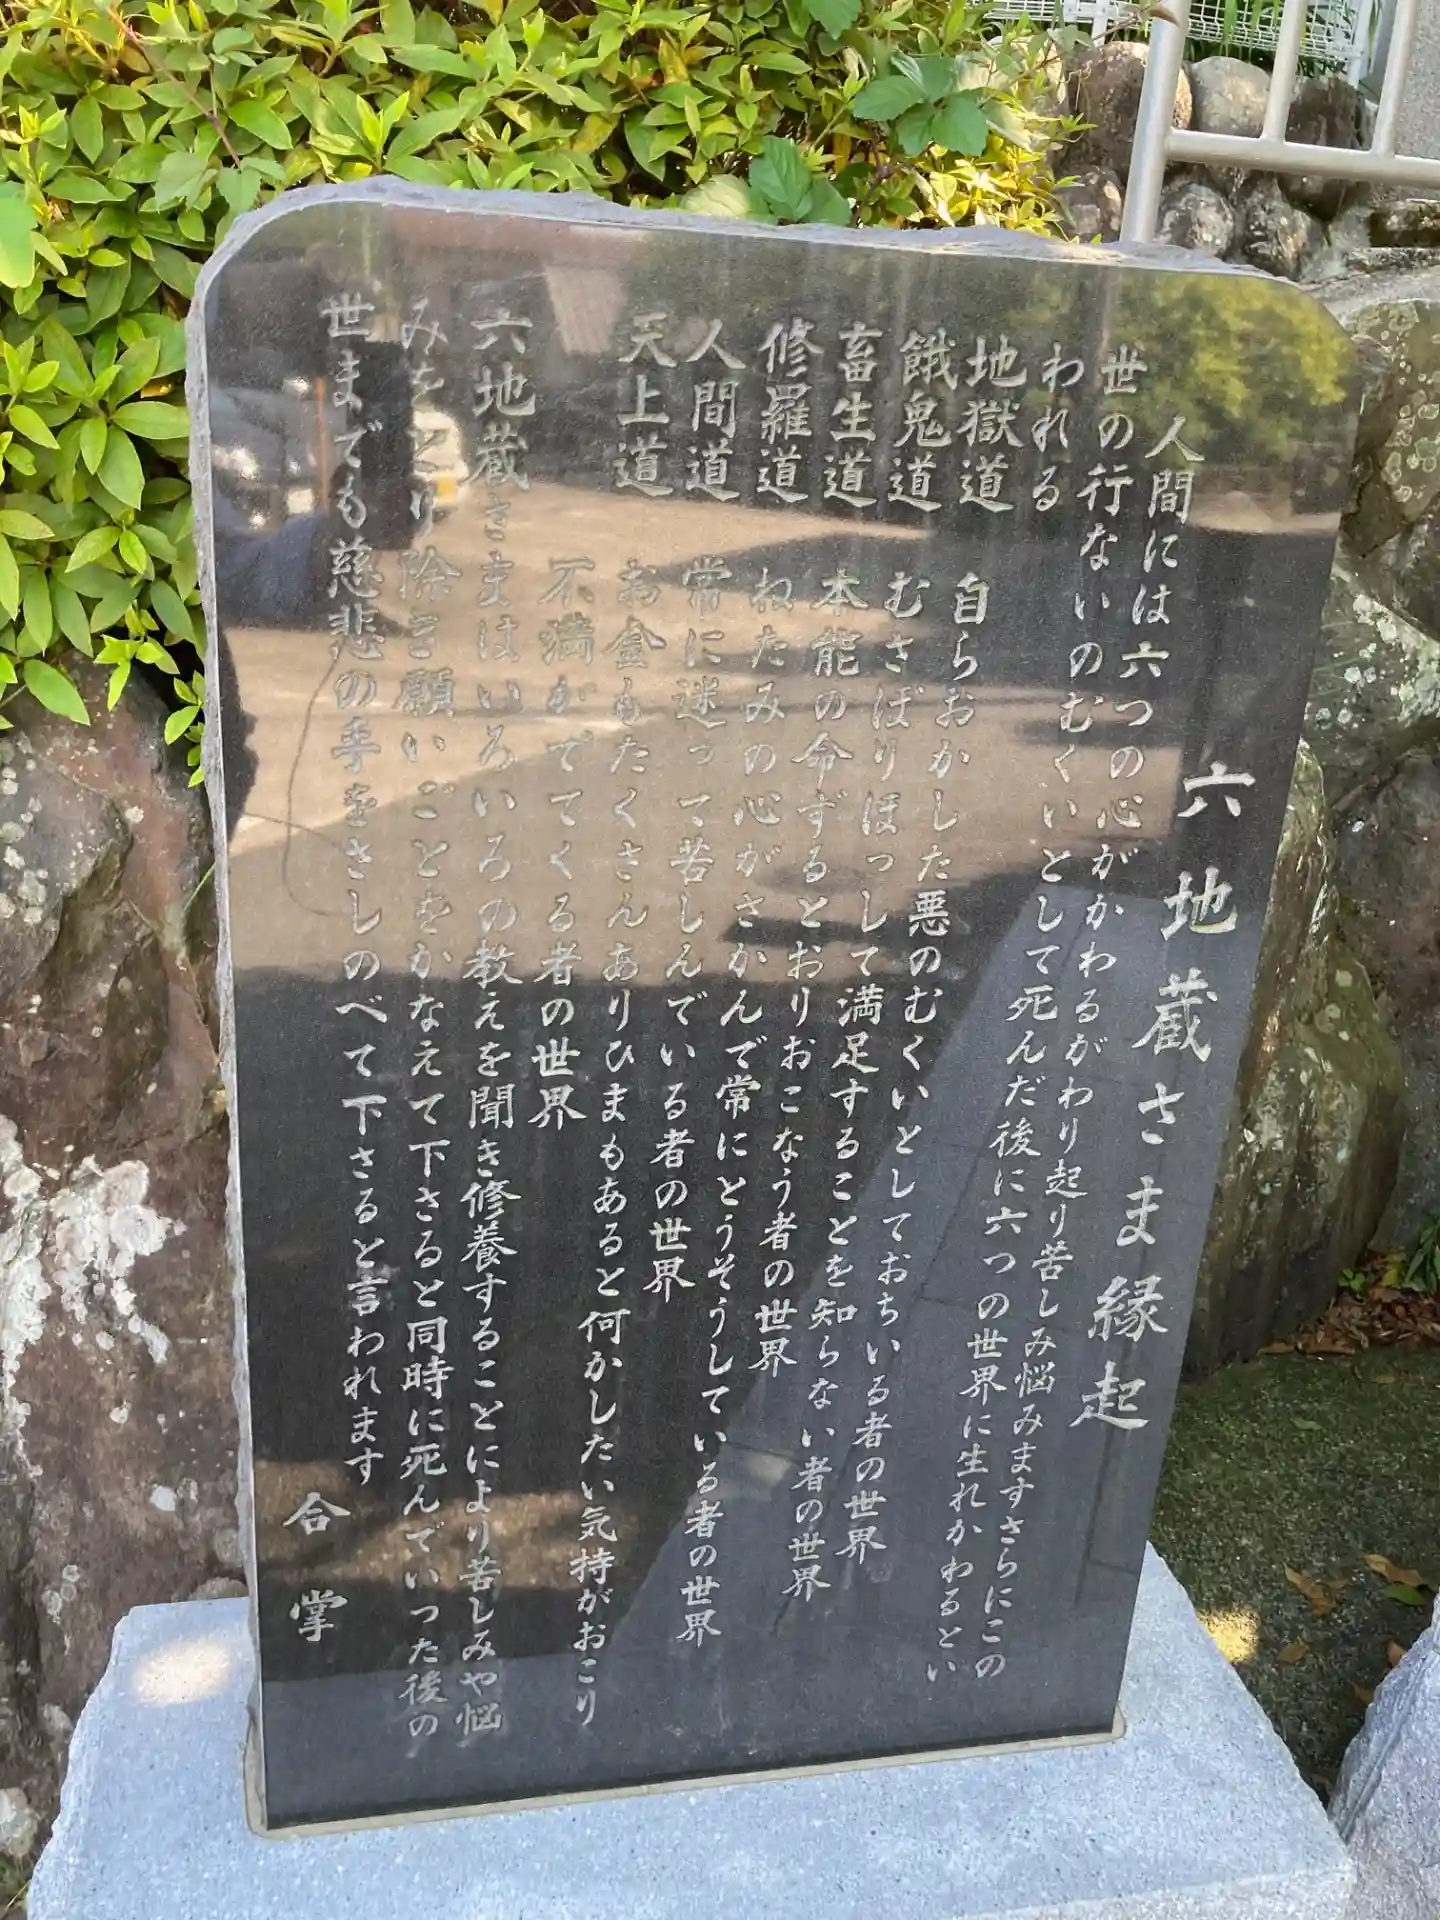 六地蔵さま縁起
人間には六つの心がかわるがわり起り苦しみ悩みますさらにこの
世の行ないのむくいとして死んだ後に六つの世界に生れかわるとい
われる
地獄道 自らおかした悪のむくいとしておちいる者の世界
餓鬼道 むさぼりほっして満足することを知らない者の世界
畜生道 本能の命ずるとおりおこなう者の世界
修羅道 ねたみの心がさかんで常にとうそうしている者の世界
人間道 常に迷って苦しんでいる者の世界
天上道 お金もたくさんありひまもあると何かしたい気持がおこり
不満がでてくる者の世界
六地蔵さまはいろいろの教えを聞き修養することにより苦しみや悩
みをとり除き願いごとをかなえて下さると同時に死んでいった後の
世までも慈悲の手をさしのべて下さると言われます
合掌